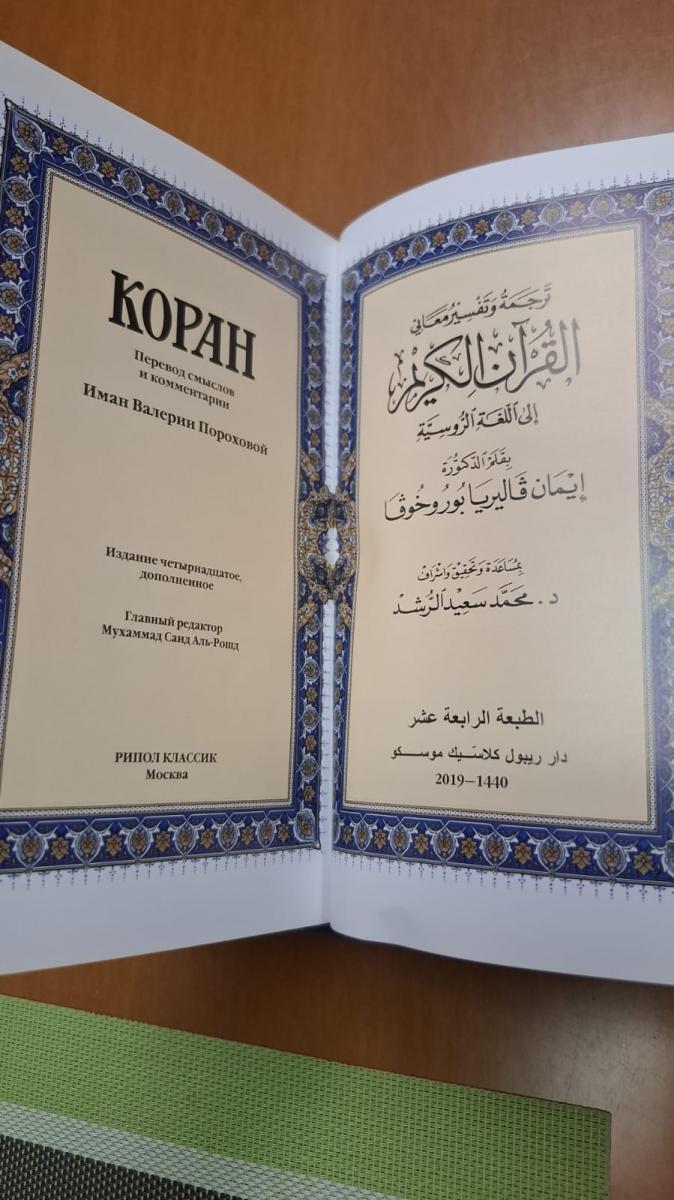 КОРАН
Перевод смыслов
и комментарии
Иман Валерии Пороховой
Издание четырнадцатое,
дополненное
Главный редактор
Мухаммад Саид Аль-Рошд
РИПОЛ КЛАССИК
Москва
تَرجَمَةُ وَتَفْسِيْرُ مَعَانِي
القُرْآنِ الكَرِيْمِ
إِلى اللّغَةِ الرُّوسِيَّةِ
بِقَلَمِ الدّكتُورَة
إِيْمَان ڤاليريا بُورُوخُوڤا
بمُسَاعَدَة وَتَحقِيْق وَاشْرَاف
د. محمّد سَعِيْد الرُّشد
الطبعة الرابعة عشر
دار ريبول كلاسّيك موسكو
2019–1440